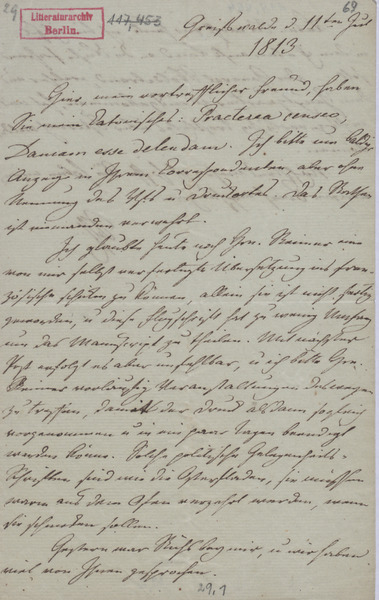 29
69
Litteraturarchiv
Berlin.
447,453
Greifswald d. 11ten Jul
1813
Hier, mein vortrefflicher Freund, haben
Sie mein Catonisches: Praeterea censeo,
Daniam esse delendam. Ich bitte um baldige
Anzeige in Ihrem Correspondenten, aber ohne
Nennung des Vfs u Druckortes. Das
ist niemanden verwehrt.
Ich glaubte heute noch Hrn. Reimer eine
von mir selbst verfertigte Übersetzung ins fran-
zösische schicken zu können, allein sie ist nicht fertig
geworden, u diese Flugschrift hat zu wenig Umfang
um das Manuscript zu theilen. Mit nächster
Post erfolgt es aber unfehlbar, u ich bitte Hrn.
Reimer vorläufig Veranstaltungen deswegen
zu treffen, damit der Druck alsdann sogleich
vorgenommen u in ein paar Tagen beendigt
werden könne. Solche politische Gelegenheits-
Schriften sind wie die Osterfladen, sie müssen
warm aus dem Ofen verzehrt werden, wenn
sie schmecken sollen.
Gestern war bey mir, u wir haben
viel von Ihnen gesprochen.
29,1